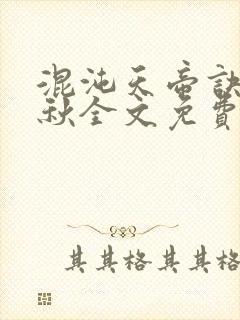 混沌天帝訣
秋全文免費
其其格其其格